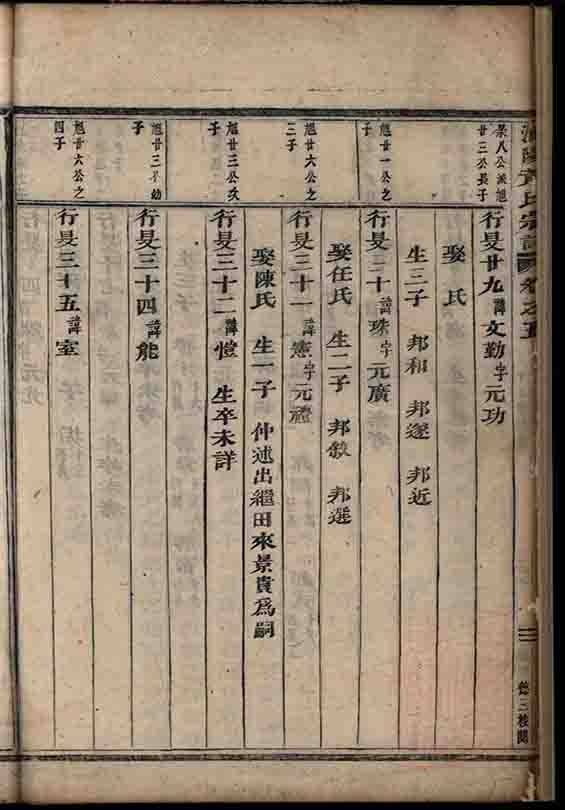 氏宗譜 卷之五
景八公派旭
廿三公長子
行旻廿九 諱文勤 字元功
娶 氏
生三子 邦和 邦遂 邦近
旭廿一公之
子
行旻三十 諱珠 字元廣
娶任氏 生二子 邦敘 邦選
旭廿六公之
三子
行旻三十一 諱憲 字元禮
娶陳氏 生一子 仲述出繼田來景貴爲嗣
旭廿三公次
子
行旻三十二 諱愷 生卒未詳
旭廿三公幼
子
行旻三十四 諱能
旭廿六公之
四子
行旻三十五 諱室
三桂閣